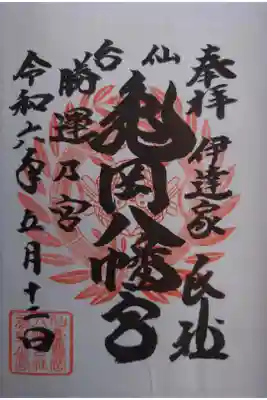 奉拝 伊達家 氏神
仙台
亀岡八幡宮
勝運乃宮
令和六年五月十二日